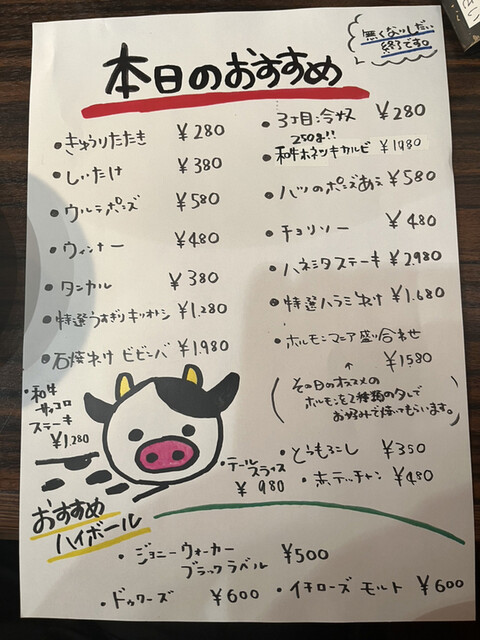 さい
無くなりしだい
終了です。
本日のおすすめ
・きゅうりたたき ¥280
・しいたけ ¥380
・ウルテポンズ ¥580
・ウィンナー ¥480
・タンカル ¥380
・特選うすぎり ¥1,280
・石焼 ビビンバ ¥1,980
・和牛
サイコロ
ステーキ
¥1,280
・3丁目冷奴 ¥280
250g!!
・和牛ホネツキカルビ ¥1980
・ハツのポンズあえ ¥580
・チョリソー ¥480
・ハネシタステーキ ¥2,980
・特選ハラミ ¥1,680
・ホルモンマニア盛り合わせ
¥1580
↑
その日のオススメの
ホルモンを2種類のタレで
お好みで焼いてもらいます。
・とうもろこし ¥350
・赤テッチャン ¥480
・テール
スライス
¥980
おすすめ
ハイボール
・ジョニーウォーカー
ブラックラベル ¥500
・ドゥワーズ ¥600
・イチローズ モルト ¥600